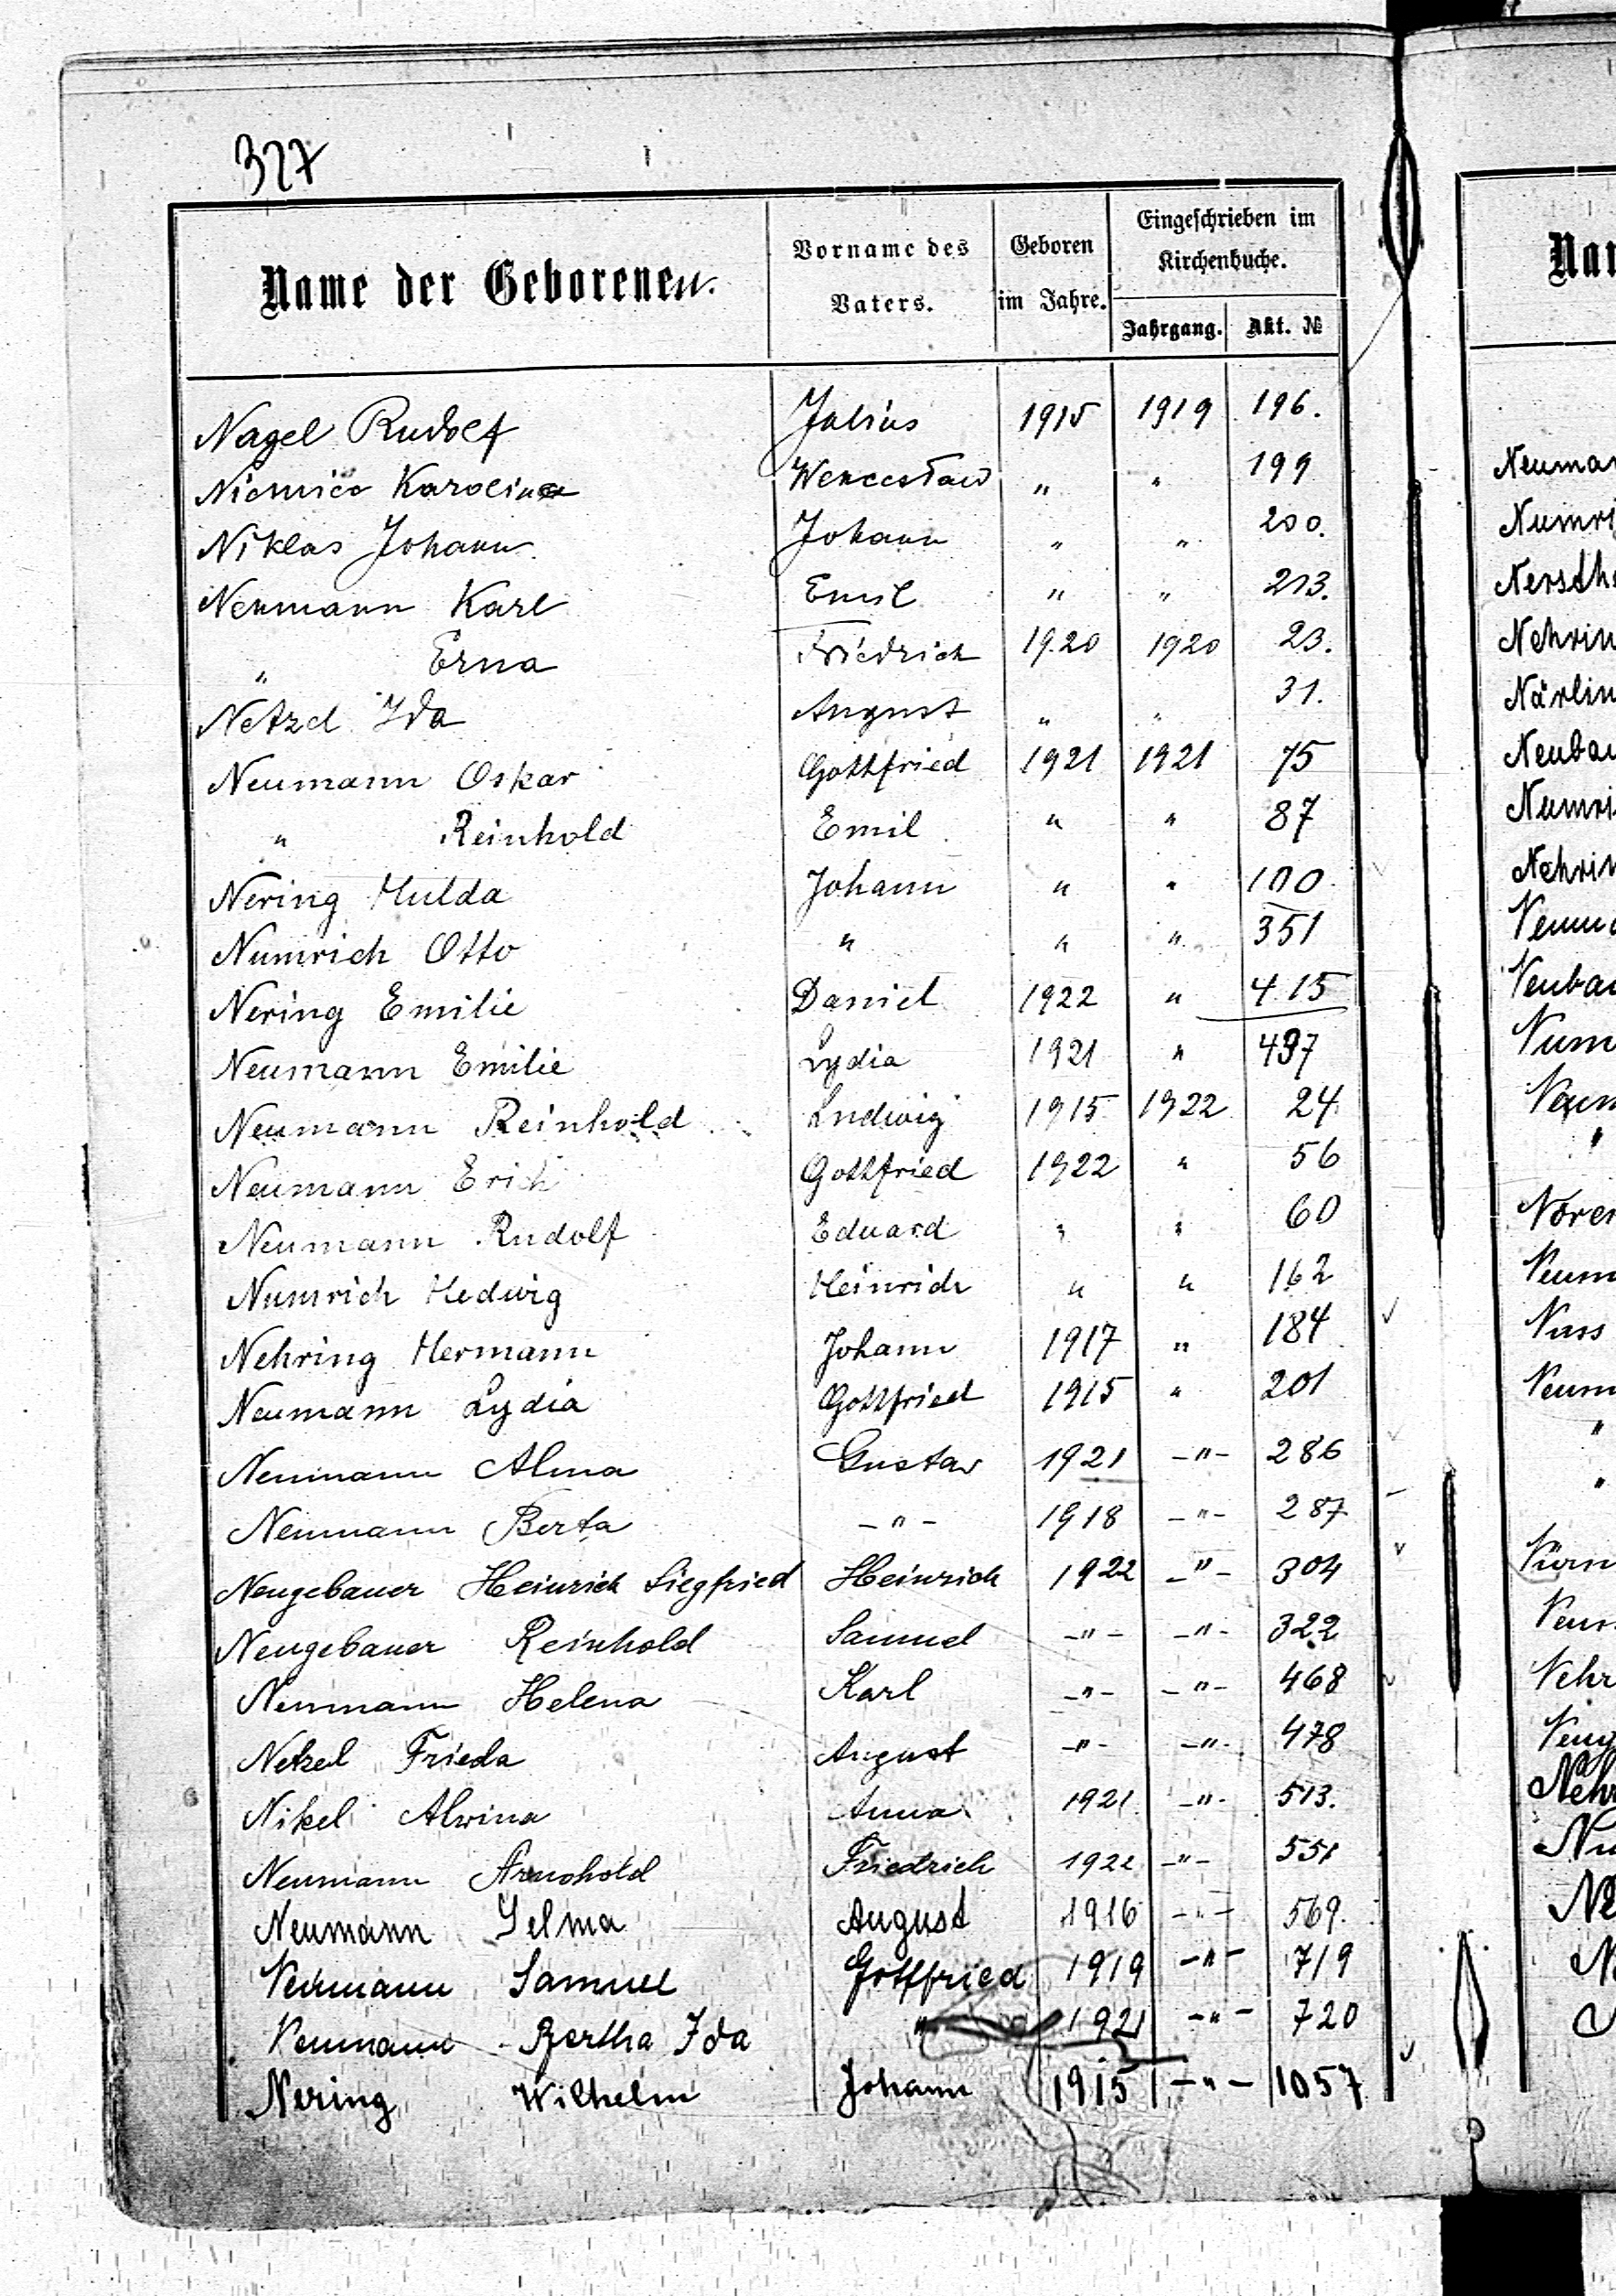 327
Name der Geborenen. Vorname des Vaters. Geboren im Jahre. Eingeschrieben im Kirchenbuche. Jahrgang. Akt. №
Nagel Rudolf Julius 1915 1919 196.
Karolina " " 199
Niklas Johann Johann " " 200.
Neumann Karl Emil " " 213.
" Erna Friedrich 1920 1920 23.
Netzel Ida August " " 31.
Neumann Oskar Gottfried 1921 1921 75
" Reinhold Emil " " 87
Nering Hulda Johann " " 100
Numrich Otto " " " 351
Nering Emilie Daniel 1922 " 415
Neumann Emilie Lydia 1921 " 497
Neumann Reinhold Ludwig 1915 1922 24
Neumann Erich Gottfried 1922 " 56
Neumann Rudolf Eduard " " 60
Numrich Hedwig Heinrich " " 162
Nehring Hermann Johann 1917 " 184
Neumann Lydia Gottfried 1915 " 201
Neumann Alma Gustav 1921 -"- 286
Neumann Berta -"- 1918 -"- 287
Neugebauer Heinrich Siegfried Heinrich 1922 -"- 304
Neugebauer Reinhold Samuel -"- -"- 322
Neumann Helena Karl -"- -"- 468
Netzel Frieda August -"- -"- 478
Nikel Alwina Anna 1921 -"- 513.
Neumann Arnohold Friedrich 1922 -"- 551
Neumann Selma August 1916 -"- 569.
Neumann Samuel Gottfried 1919 -"- 719
Neumann Bertha Ida " 1921 -"- 720
Nering Wilhelm Johann 1915 -"- 1057